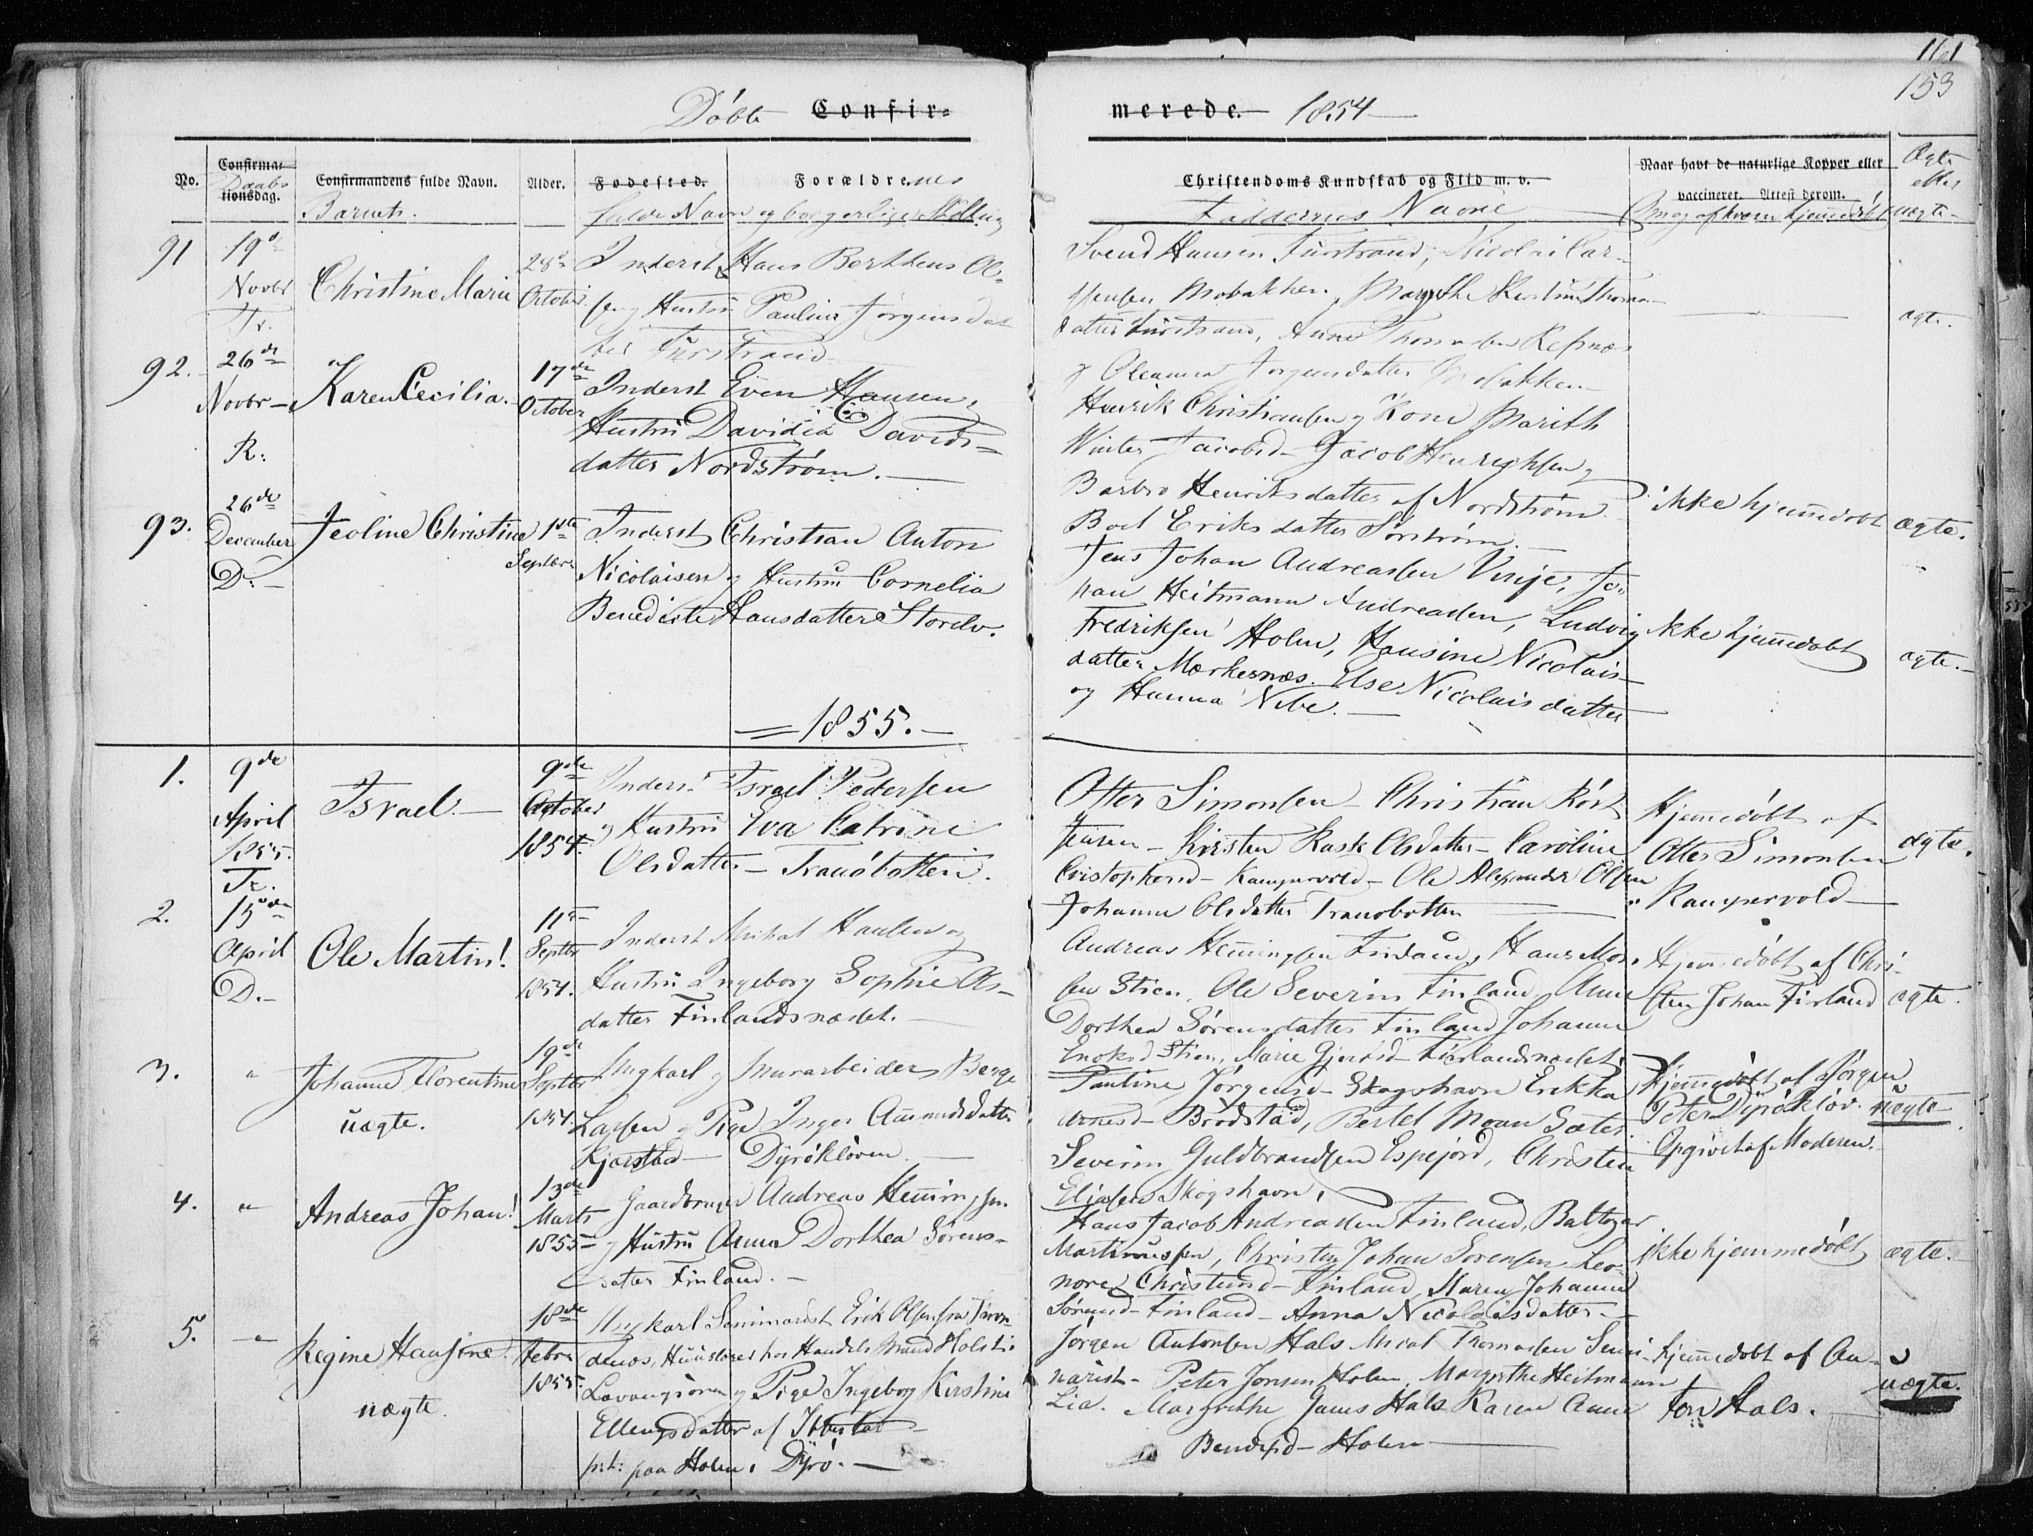 161
153
Döbte Confir=
merede. 1854
No.
Confirma=
tionsdag.
Daabs
Confirmandens fulde Navn.
Barnets.
Alder.
Fødested.
Forældrenes
fulde Navn og borgerlige Stilling
Christendoms Kundskab og Flid m. v.
Faddernes Navne
Naar havt de naturlige Kopper eller
vaccineret. Attest derom.
Ægte
eller
uægte
91
19de
Novbr
Tr.
Christine Marie
28de
October
Inderst Hans Bertheus Ol-
sen og Hustru Paulina Jörgensdat
ter Furstrand
Svend Hansen Furstrand, Nicolai Car-
datter Furstrand, Anne
og Oleanna Jörgensdatter Mobakken
ægte.
92.
26de
Novbr
R.
Karen Cecilia.
17de
October
Inderst Even Hansen og
Hustru Davidia Davids=
datter Nordström.
Henrik Christiansen og Kone Marith
Winter Jacobsd- Jacob Henrichsen og
Barbro Henriksdatter af Nordström
Boel Eriksdatter Sörström.
ikke hjemmedöbt
ægte.
93.
26de
December
D.
Jeoline Christine
1ste
Septbr
Inderst Christian Anton
Nicolaisen og Hustru Cornelia
Benedicte Hansdatter Storelv.
Jens Johan Andreassen Vinje, Jo-
han Heitmann Andreassen, Ludvig
Fredriksen Holm, Hansine Nicolais-
datter Markenæs. Else Nicolaisdatter
og Hanna Vibe.
ikke hjemmedöbt
ægte.
1855.
1.
9de
April
1855.
Tr.
Israel.
9de
October
1854.
Inderst Israel Pedersen
og Hustru Eva Catrine
Olsdatter - Tranöbotten.
Otter Simonsen - Christian Rört
Jensen - Kirsten Rask Olsdatter - Caroline
Cristophersd- Kampervold - Ole Alexander Olsen
Johanna Olsdatter Tranobotten
Hjemmedöbt af
Otter Simonsen
Kampervold
ægte.
2.
15de
April
D.
Ole Martin!
11te
Septbr
1854.
Inderst Mikal Hansen og
Hustru Ingeborg Sophie Ols-
datter Finlandsnæset.
Andreas Hemmingsen Finland, Hans Mor-
sen Stien, Ole Severin Finland, Anne
Dorthea Sörensdatter Finland, Johanna
Enoksd Stien, Marie Finlandsnæset
Hjemmedöbt af Chri-
sten Johan Finland
ægte.
3.
"
Johanne Florentine
uægte.
19de
Septbr
1854.
Ungkarl og Murarbeider Berge
Larsen og Pige Inger Amundsdatter
Kjarstad - Dyröklöven.
Pauline Jörgensd- Skogshavn Erikka
Brödstad, Bertel Moan Sæter
Severin Guldbrandsen Espejord, Christen
Eliasen Skogshavn,
Hjemmedöbt af Jörgen
Peter Dyröklöv.
Opgivet af Moderen.
uægte
4.
"
Andreas Johan!
13de
Marts
1855
Gaardbruger Andreas Hemmingsen
og Hustru Anna Dorthea Sörens-
datter Finland.
Hans Jacob Andreassen Finland, Baltzar
Martinussen, Christen Johan Sörensen, Leo-
nore Christensd- Finland, Maren Johanna
Sörensd- Finland - Anna Nicolaisdatter
ikke hjemmedöbt
ægte.
5.
"
Regine Hansine!
uægte.
18de
Febru
1855.
Ungkarl Seminarist Erik Olsen fra Tron-
denæs, Huuslærer hos Handelsmand Holst i
Lavangsören og Pige Ingeborg Kirstine
Ellengsdatter af Ibbestad
p: t: paa Holm i Dyrö.
Jörgen Antonsen Hals Mical Thomassen Semi-
narist - Peter Jonsen Holm, Margrethe Heitmann
Lia. Margrethe Jansd Hals Karen Anne
Holm
Hjemmedöbt af An-
ton Hals.
uægte.